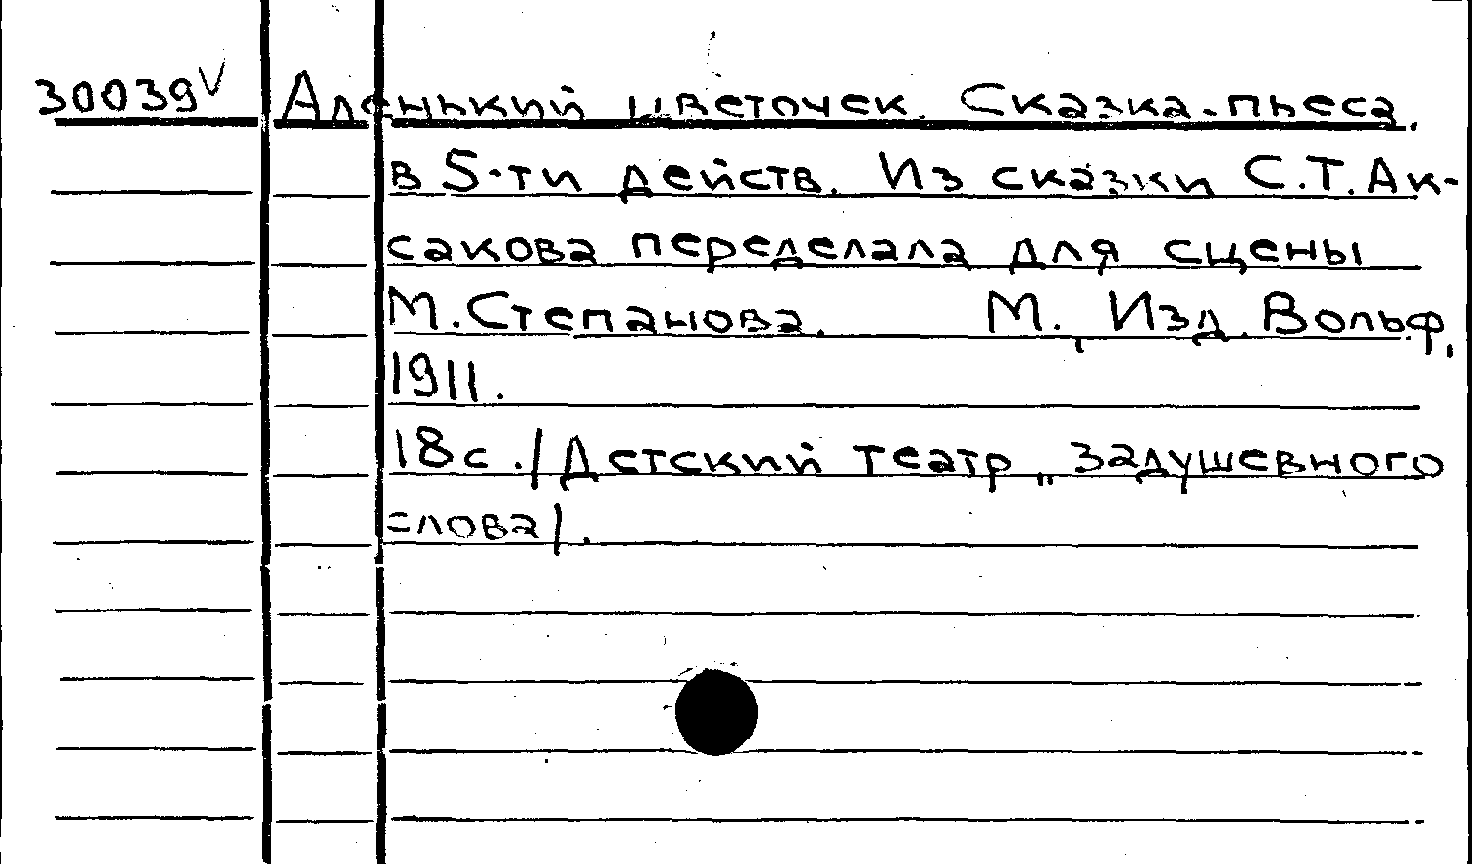 30039 V Аленький цветочек. Сказка-пьеса.
в 5-ти действ. Из сказки С.Т. Ак-
сакова переделала для сцены
М. Степанова. М. Изд. Вольф,
1911.
18с. /Детский театр „Задушевного
слова/.